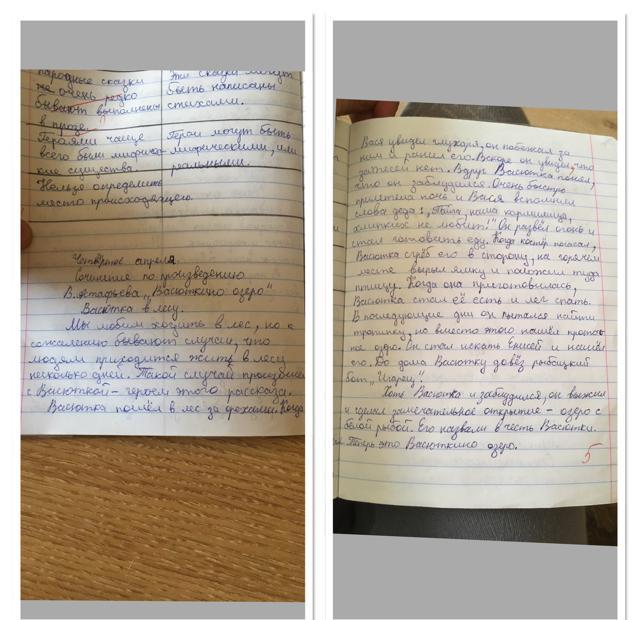 народные сказки
же очень редко
бывают выполнены
в прозе.
Эти сказки могут
быть написаны
стихами.
Героями чаще
всего были мифичес-
кие существа
Герои могут быть
мифическими, или
реальными.
Нельзя определить
место происходящего.
Четвёртое апреля.
Сочинение по произведению
В. Астафьева „Васюткино озеро"
Васютка в лесу.
Мы любим ходить в лес, но к
сожалению бывают случаи, что
людям приходится жить в лесу
несколько дней. Такой случай произошёл
с Васюткой – героем этого рассказа.
Васютка пошёл в лес за орехами. Когда
Вася увидел глухаря, он побежал за
ним и ранил его. Вскоре он увидел, что
затесей нет. Вдруг Васютка понял,
что он заблудился. Очень быстро
прилетела ночь и Вася вспомнил
слова деда: „Тайга, наша кормилица,
хлипких не любит!" Он развёл огонь и
стал готовить еду. Когда костёр погасал,
Васютка сгрёб его в сторону, на горячем
месте вырыл ямку и положил туда
птицу. Когда она приготовилась,
Васютка стал её есть и лёг спать.
В последующие дни он пытался найти
тропинку, но вместо этого нашёл
озеро. Он стал искать Енисей и нашёл
его. До дома Васютку довёз рыбацкий
бот „Игарец".
Хоть Васютка и заблудился, он выжил
и сделал замечательное открытие – озеро с
белой рыбой. Его назвали в честь Васютки.
Теперь это Васюткино озеро.
5